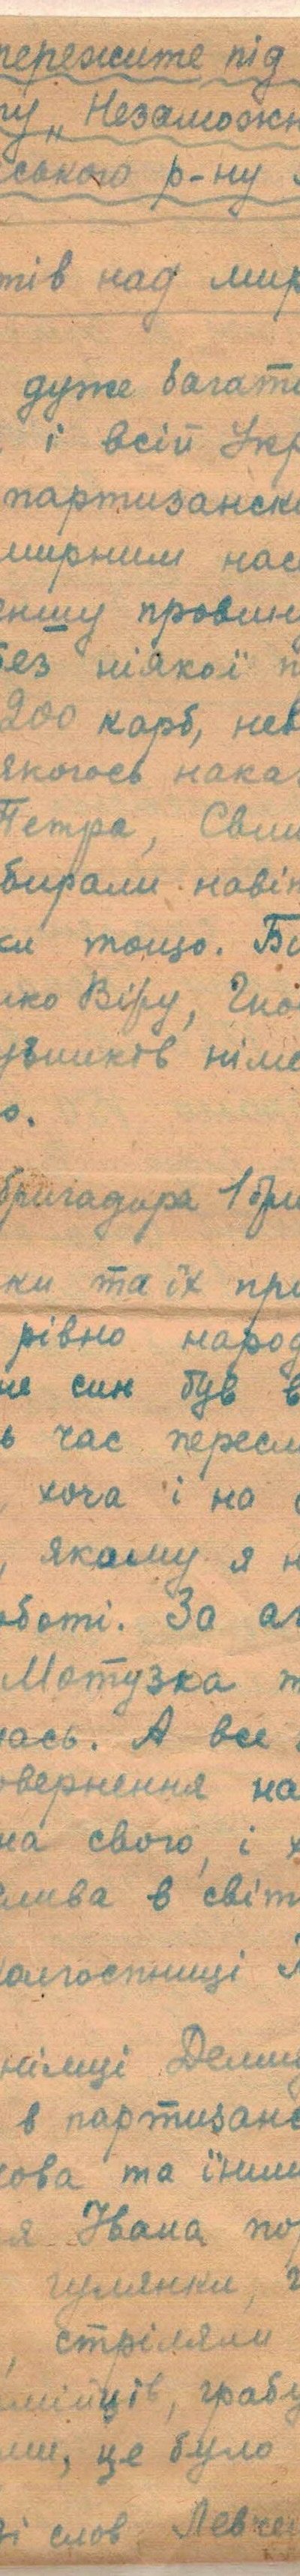 пережите під
гу „Незаможн
ського р-ну
тів над мир
дуже багать
і всій Укр
партизанськ
мирним нас
еншу провин
без ніякої п
200 карб, нев
якогось нака
Петра, Сви
бирали навіт
ки тощо. Бі
ко Віру, Гно
ників німе
о.
бригадира 1 бри
ки та їх при
рівно народ
не син був в
ь час пересл
, хоча і на
, якому я н
оботі. За
Мотузка т
лась. А все
овернення на
на свого, і х
лива в світ
колгоспниці
німці Демид
в партизанс
кова та їним
я Івана пор
гулянки, г
, стріляли
мійців, грабу
ми, це було
зі слов Левчен